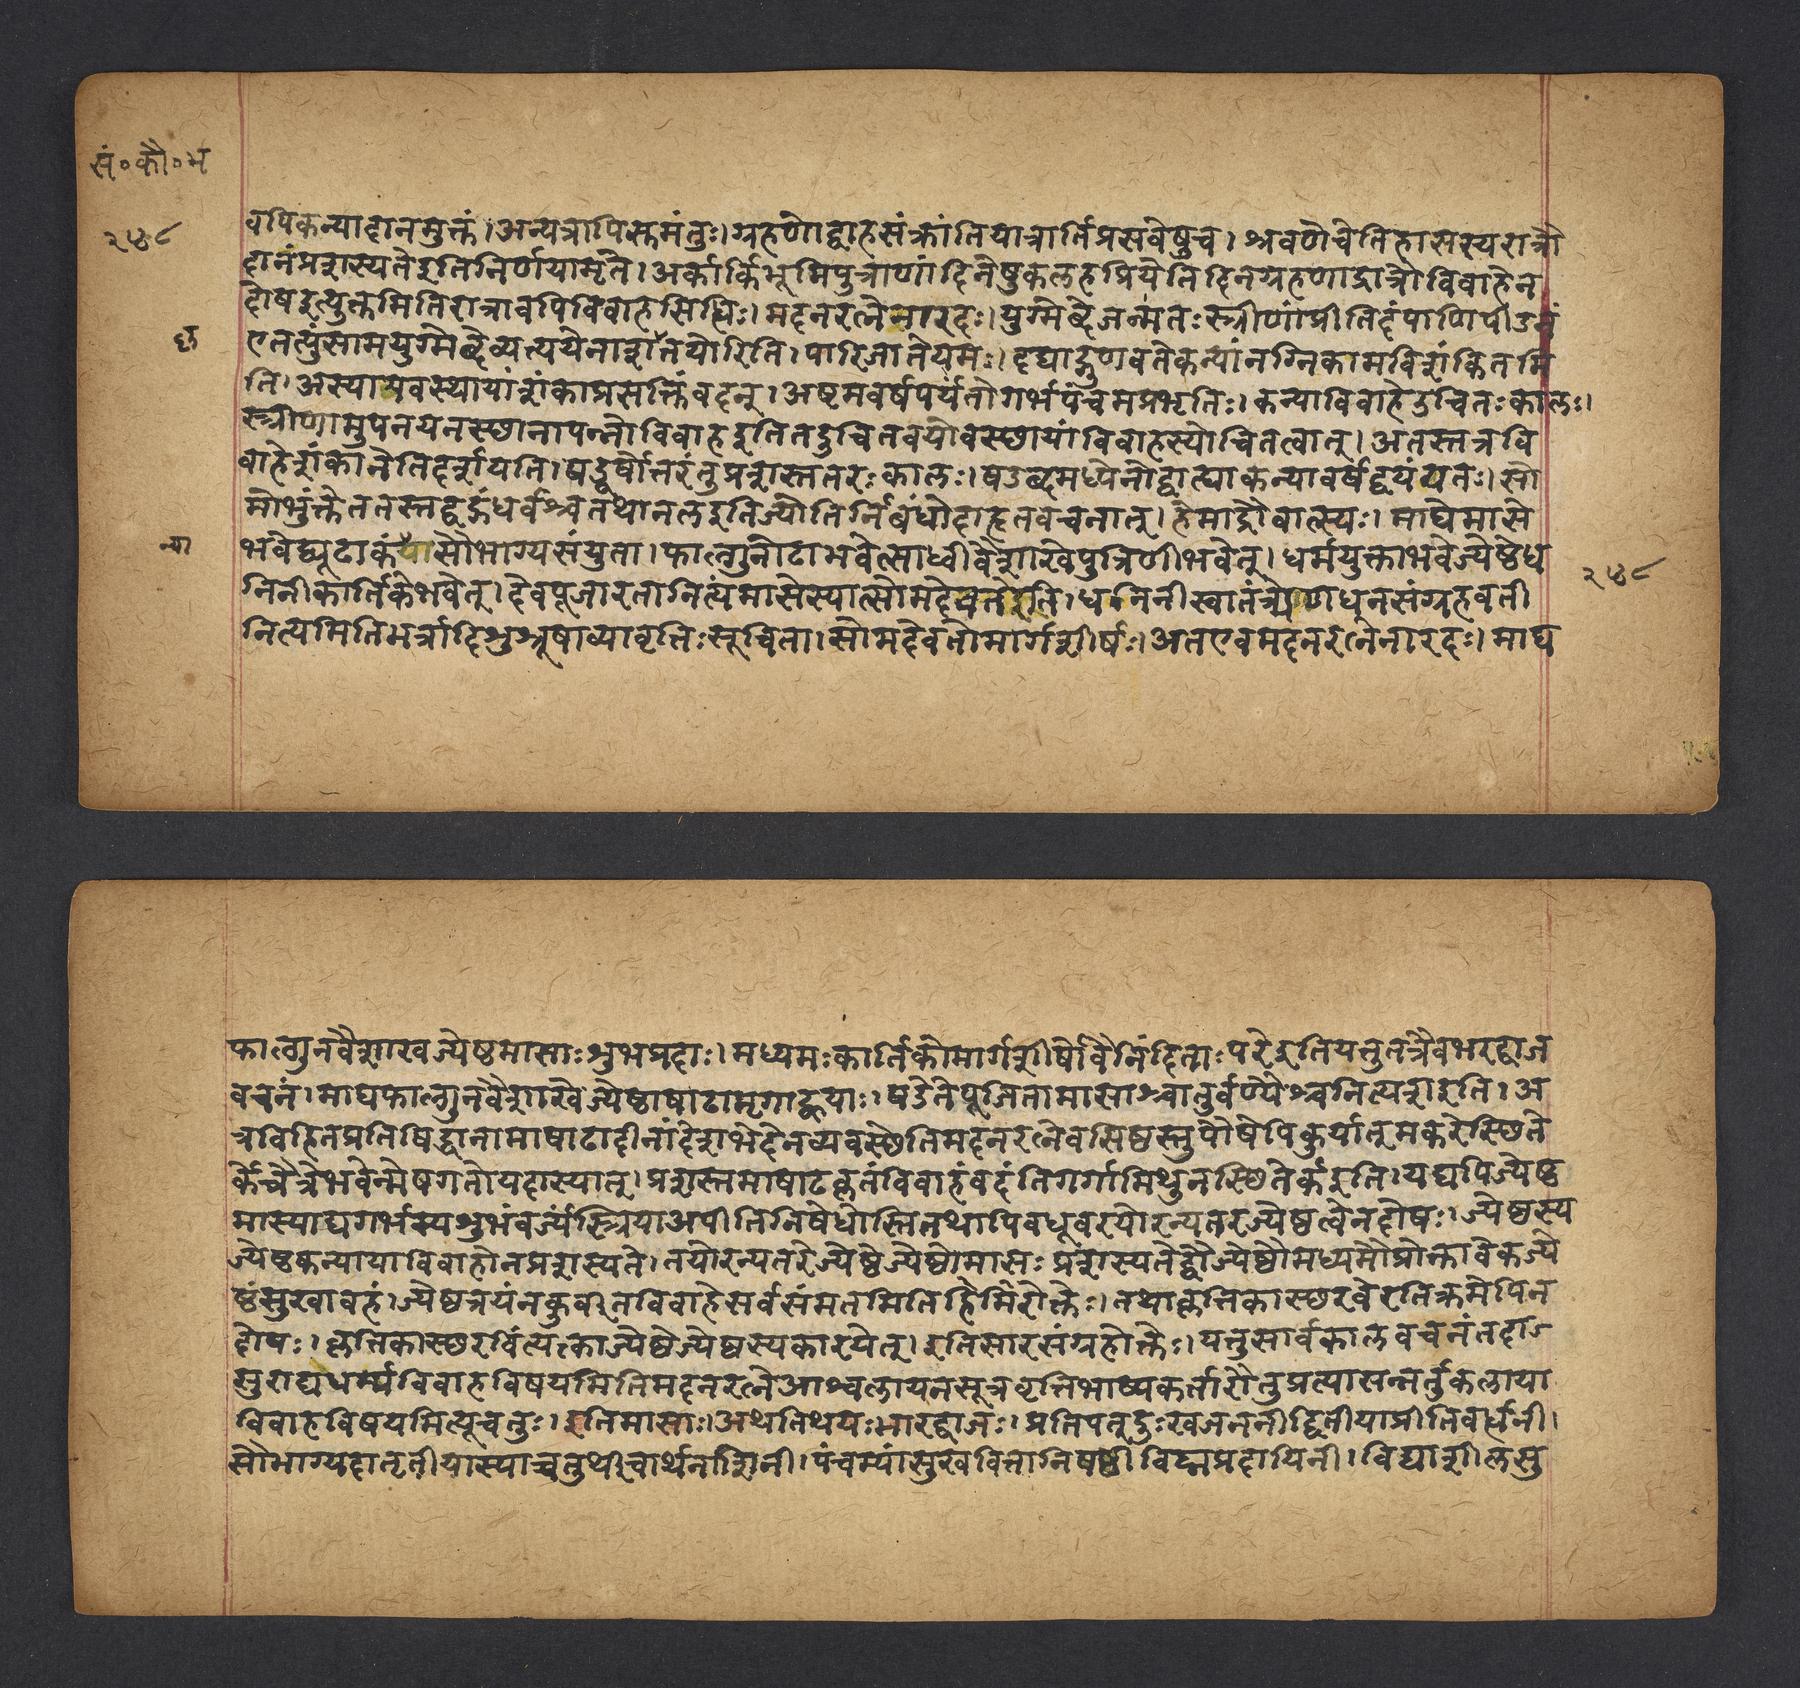 सं०कौ०म
२५८
वपिकन्यादानमुक्तं।अन्यत्रापिस्तमंतुः।ग्रहणोद्वाहसंक्रांतियात्रार्तिप्रसवेषुच।श्रवणेचेतिहासस्यरात्रौ
दानंप्रशस्यतेइतिनिर्णयामृते।अर्कार्किभूमिपुत्राणांदिनेषुकलहप्रियेतिदिनेग्रहणाद्रात्रौविवाहेन
दोषइत्युक्तमितिरात्रावपिविवाहसिद्धिः।मदनरत्नेनारदः।युग्मेब्देजन्मतःस्त्रीणांप्रीतिदंपाणिपीडनं
एतत्पुंसामयुग्मेब्देव्यत्ययेनाशनंतयोरिति।पारिजातेयमः।दद्याद्गुणवतेकन्यांनग्निकामविशंकितमि
द्ग
ति।अस्यामवस्थायांशंकाप्रसक्तिंवदन्।अष्टमवर्षपर्यंतोगर्भपंचमप्रभृतिः।कन्याविवाहेउचितःकालः।
स्त्रीणामुपनयनस्छानापन्नोविवाहइतितदुचितवयोवस्छायांविवाहस्योचितत्वात्।अतस्तत्रवि
वाहेशंकानेतिदर्शयति।षड्वर्षोत्तरंतुप्रशस्ततरःकालः।षडब्दमध्येनोद्वाह्याकन्यावर्षद्वयंयतः।सो
मोभुंक्तेततस्तद्वद्गंधर्वश्चतथानलइतिज्योतिर्निबंधोदाहृतवचनात्।हेमाद्रौवात्स्यः।माघेमासे
न्या
भवेद्व्यूढाकंयासौभाग्यसंयुता।फाल्गुनोढाभवेत्साध्वीवैशाखेपुत्रिणीभवेत्।धर्मयुक्ताभवेज्येष्ठेध
२५८
ग्निनीकार्तिकेभवेत्।देवपूजारतानित्यंमासेस्यात्सौमदेवतेइति।धग्निनीस्वातंत्र्येणधनसंग्रहवती
नित्यमितिभर्त्रादिशुश्रूषाव्यावृत्तिःसूचिता।सोमदेवतोमार्गशीर्षः।अतएवमदनरत्नेनारदः।माघ
फाल्गुनवैशाखज्येष्ठमासाःशुभप्रदाः।मध्यमःकार्तिकोमार्गशीर्षोवैनिंदिताःपरेइतियत्तुतत्रैवभरद्वाज
वचनं।माघफाल्गुनवैशाखेज्येष्ठाषाढामृगाह्वयाः।षडेतेपूजितामासाश्चातुर्वर्ण्येश्चनित्यशइति।अ
त्रविहितप्रतिषिद्धानामाषाढादीनांदेशभेदेनव्यवस्छेतिमदनरत्नेवसिष्ठस्तुपौषेपिकुर्यात्मकरेस्छिते
र्केचैत्रेभवेन्मेषगतोयदास्यात्।प्रशस्तमाषाढकृतंविवाहंवदंतिगर्गामिथुनस्छितेर्कइति।यद्यपिज्येष्ठ
मास्याद्यगर्भस्यशुभंवर्ज्यंस्त्रियाअपीतिनिषेधोस्तितथापिवधूवरयोरन्यतरज्येष्ठत्वेनदोषः।ज्येष्ठस्य
ज्येष्ठकन्यायाविवाहोनप्रशस्यते।तयोरन्यतरेज्येष्ठेज्येष्ठोमासःप्रशस्यतेद्वौज्येष्ठौमध्यमौप्रोक्तावेकज्ये
ष्ठंसुखावहं।ज्येष्ठत्रयंनकुर्वीतविवाहेसर्वसंमतमितिहिमिरोक्तेः।तथाकृत्तिकास्छरवेरतिक्रमेपिन
दोषः।कृत्तिकास्छरविंत्यक्ताज्येष्ठेज्येष्ठस्यकारयेत्।इतिसारसंग्रहोक्तेः।यत्तुसार्वकालवचनंतदा
सुराद्यधर्म्यविवाहविषयमितिमदनरत्नेआश्वलायनसूत्रवृत्तिभाष्यकर्तारौतुप्रत्यासन्नर्तुकलाया
विवाहविषयमित्यूचतुः।इतिमासाः।अथतिथयःभारद्वाजः।प्रतिपत्दुःखजननीद्वितीयाप्रीतिवर्धनी।
सौभाग्यदातृतीयास्याच्चतुर्थीचार्थनाशिनी।पंचम्यांसुखवित्तानिषष्ठीविघ्नप्रदायिनी।विद्याशीलसु